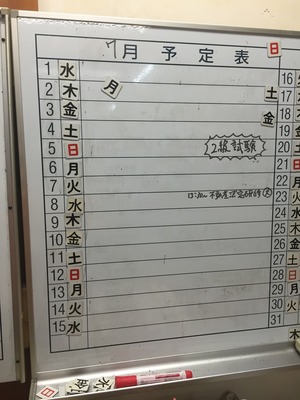 7月 予定表 日
1 水
2 木 月
3 金
4 土
5 日 2級試験
6 月
7 火
8 水
9 木
10 金
11 土
12 日
13 月
14 火
15 水
16
17 土
18 金
19
20 土
21 日
22 月
23 火
24 水
25 木
26 金
27 土
28 日
29 月
30 火
31
木
日